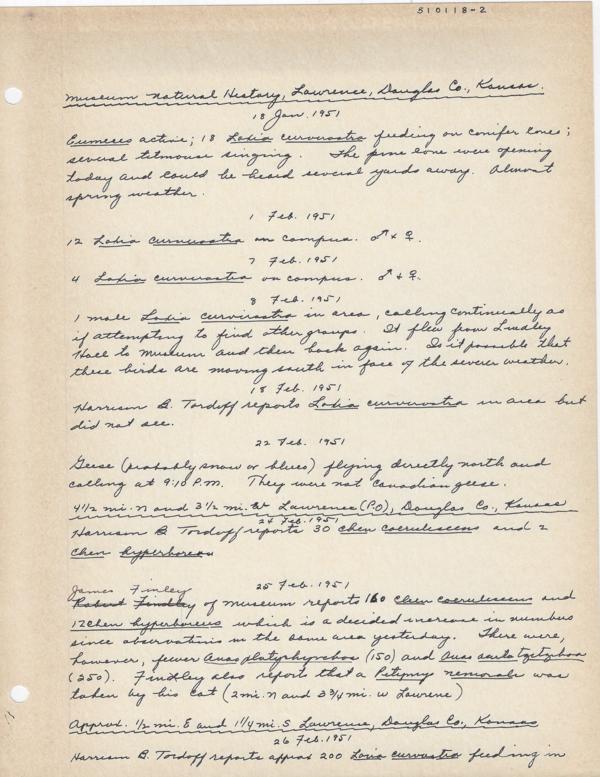 510118-2
Museum Natural History, Lawrence, Douglas Co., Kansas.
18 Jan. 1951
Eumeces active; 18 Loxia curvirostra feeding on conifer cones;
several titmouse singing. The pine cone were opening
today and could be heard several yards away. Almost
spring weather.
1 Feb. 1951
12 Loxia curvirostra on campus. ♂ + ♀.
7 Feb. 1951
4 Loxia curvirostra on campus. ♂ + ♀.
8 Feb. 1951
1 male Loxia curvirostra in area, calling continually as
if attempting to find other groups. It flew from Lindley
Hall to Museum and then back again. Is it possible that
these birds are moving south in face of the severe weather.
18 Feb. 1951
Harrison B. Tordoff reports Loxia curvirostra in area but
did not see.
22 Feb. 1951
Geese (probably snow or blues) flying directly north and
calling at 9:10 P.M. They were not Canadian geese.
4 1/2 mi. N and 3 1/2 mi. W Lawrence (P.O), Douglas Co., Kansas
24 Feb. 1951
Harrison B Tordoff reports 30 Chen coerulescens and 2
Chen hyperborea
25 Feb. 1951
James Finley
Robert Findley of Museum reports 160 Chen coerulescens and
12 Chen hyperboreus which is a decided increase in numbers
since observations in the same area yesterday. There were,
however, fewer Anas platyrhynchos (150) and Anas acuta tzitzihoa
(250). Findley also report that a Pitymys nemoralis was
taken by his cat (2 mi. N and 3 3/4 mi. W Lawrence)
Approx. 1/2 mi. E and 1 1/4 mi. S Lawrence, Douglas Co., Kansas
26 Feb. 1951
Harrison B. Tordoff reports approx 200 Loxia curvirostra feeding in